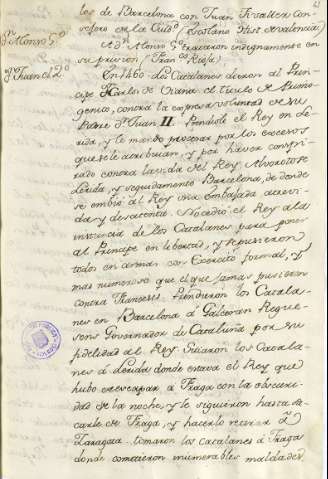 les de Barcelona con Juan Fivaller Con-
sejero en la Ciud.
D.n Alonso 5.o
A D.n Alonso 5.o trataron indignamente en
su prision
D.n Juan el 2.o
En 1460. los Catalanes dieron al Prin-
cipe Carlos de Viana el titulo de Primo-
genito, contra la expresa voluntad de su
Padre D.n Juan II. Prendiole el Rey en Le-
rida, y le mandó procesar por los excesos
que se le atribuian, y por haver conspi-
rado contra la vida del Rey. Alvorotose
Lérida, y seguidamente Barcelona, de donde
se embió al Rey una Embajada atrevi-
da y desatenta. No cedió el Rey a la
instancia de los Catalanes para poner
al Principe en libertad, y se pusieron
todos en armas con Exercito formal, y
mas numeroso que el que jamas pusieron
contra Franceses. Prendieron los Catala-
nes en Barcelona á Galceran Reque-
sens Governador de Cataluña por su
fidelidad al Rey. Sitiaron los Catala-
nes á Lerida donde estava el Rey que
hubo de escapar á Fraga con la obscuri-
dad de la noche, y le siguieron hasta sa-
carle de Fraga, y hacerlo retirar á
Zaragoza. tomaron los Catalanes á Fraga
donde cometieron inumerables maldades